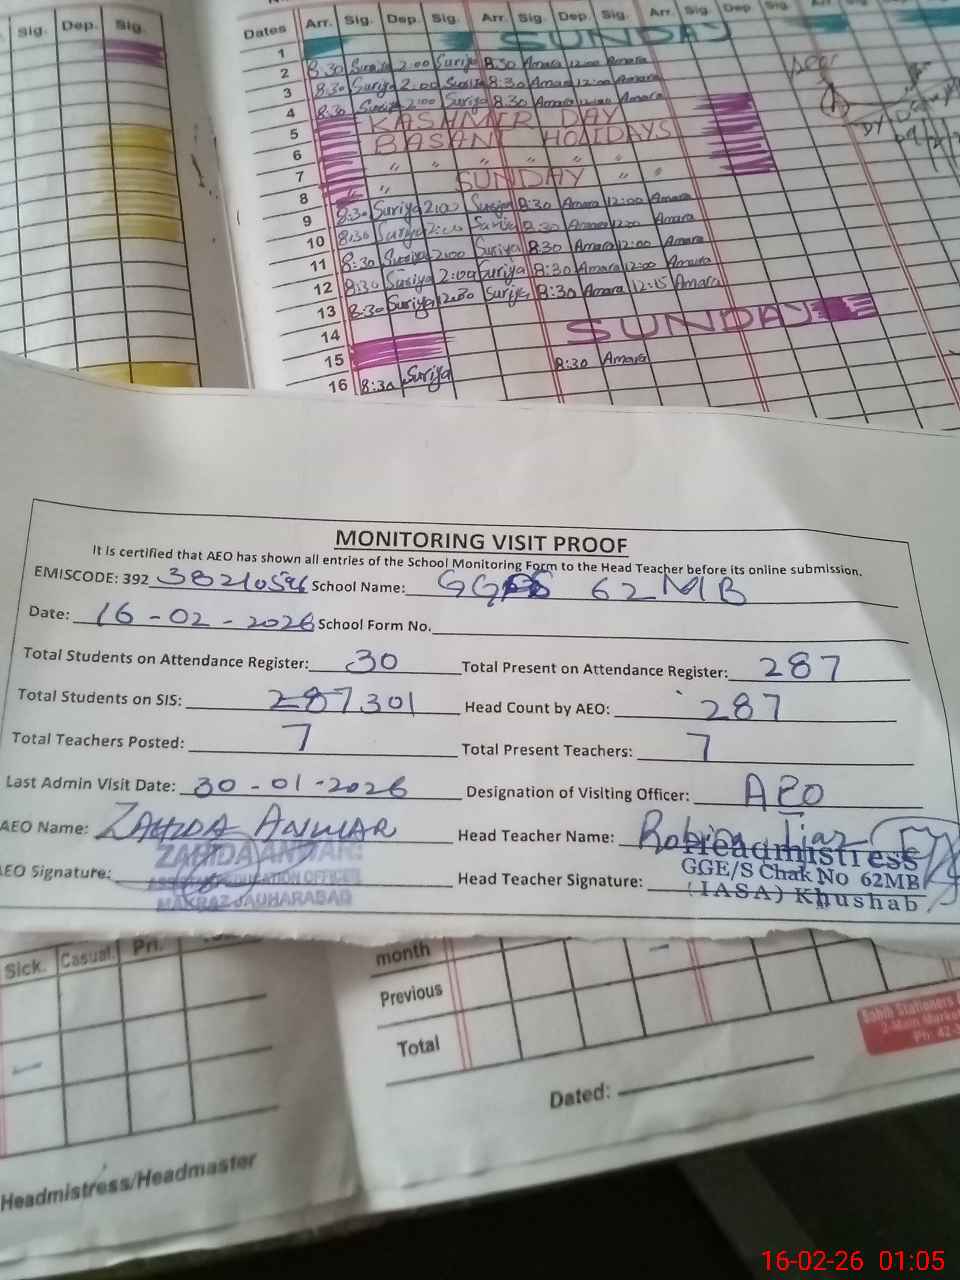 Sig. Dep. Sig.
Dates Arr. Sig. Dep. Sig. Arr. Sig. Dep. Sig. Arr. Sig. Dep Sig.
1 SUNDAY
2 8:30 Suriya 2:00 Suriya 8:30 Amara 12:00 Amara
3 8:30 Suriya 2:00 Suriya 8:30 Amara 12:00 Amara
4 8:30 Suriya 2:00 Suriya 8:30 Amara 12:00 Amara
5 KASHMIR DAY
6 BASANT HOLIDAYS
7 " " " " " " "
8 " " SUNDAY " "
9 8:30 Suriya 2:00 Suriya 8:30 Amara 12:00 Amara
10 8:30 Suriya 2:00 Suriya 8:30 Amara 12:00 Amara
11 8:30 Suriya 2:00 Suriya 8:30 Amara 12:00 Amara
12 8:30 Suriya 2:00 Suriya 8:30 Amara 12:00 Amara
13 8:30 Suriya 12:30 Suriya 8:30 Amara 12:15 Amara
14
15 SUNDAY
16 8:30 Suriya 8:30 Amara
MONITORING VISIT PROOF
It is certified that AEO has shown all entries of the School Monitoring Form to the Head Teacher before its online submission.
EMISCODE: 392 38210596 School Name: GGES 62 MB
Date: 16-02-2026 School Form No.
Total Students on Attendance Register: 30 Total Present on Attendance Register: 287
Total Students on SIS: 287 301 Head Count by AEO: 287
Total Teachers Posted: 7 Total Present Teachers: 7
Last Admin Visit Date: 30-01-2026 Designation of Visiting Officer: AEO
AEO Name: ZAHIDA ANWAR Head Teacher Name:
ZAHIDA ANWAR Headmistress
AEO Signature: ASSISTANT EDUCATION OFFICER Head Teacher Signature: GGE/S Chak No 62MB
MARKAZ JAUHARABAD (IASA) Khushab
Sick. Casual. Pri.
month
Previous
Total
Sahib Stationers
2-Main Market
Ph: 42-3
Dated:
Headmistress/Headmaster
16-02-26 01:05